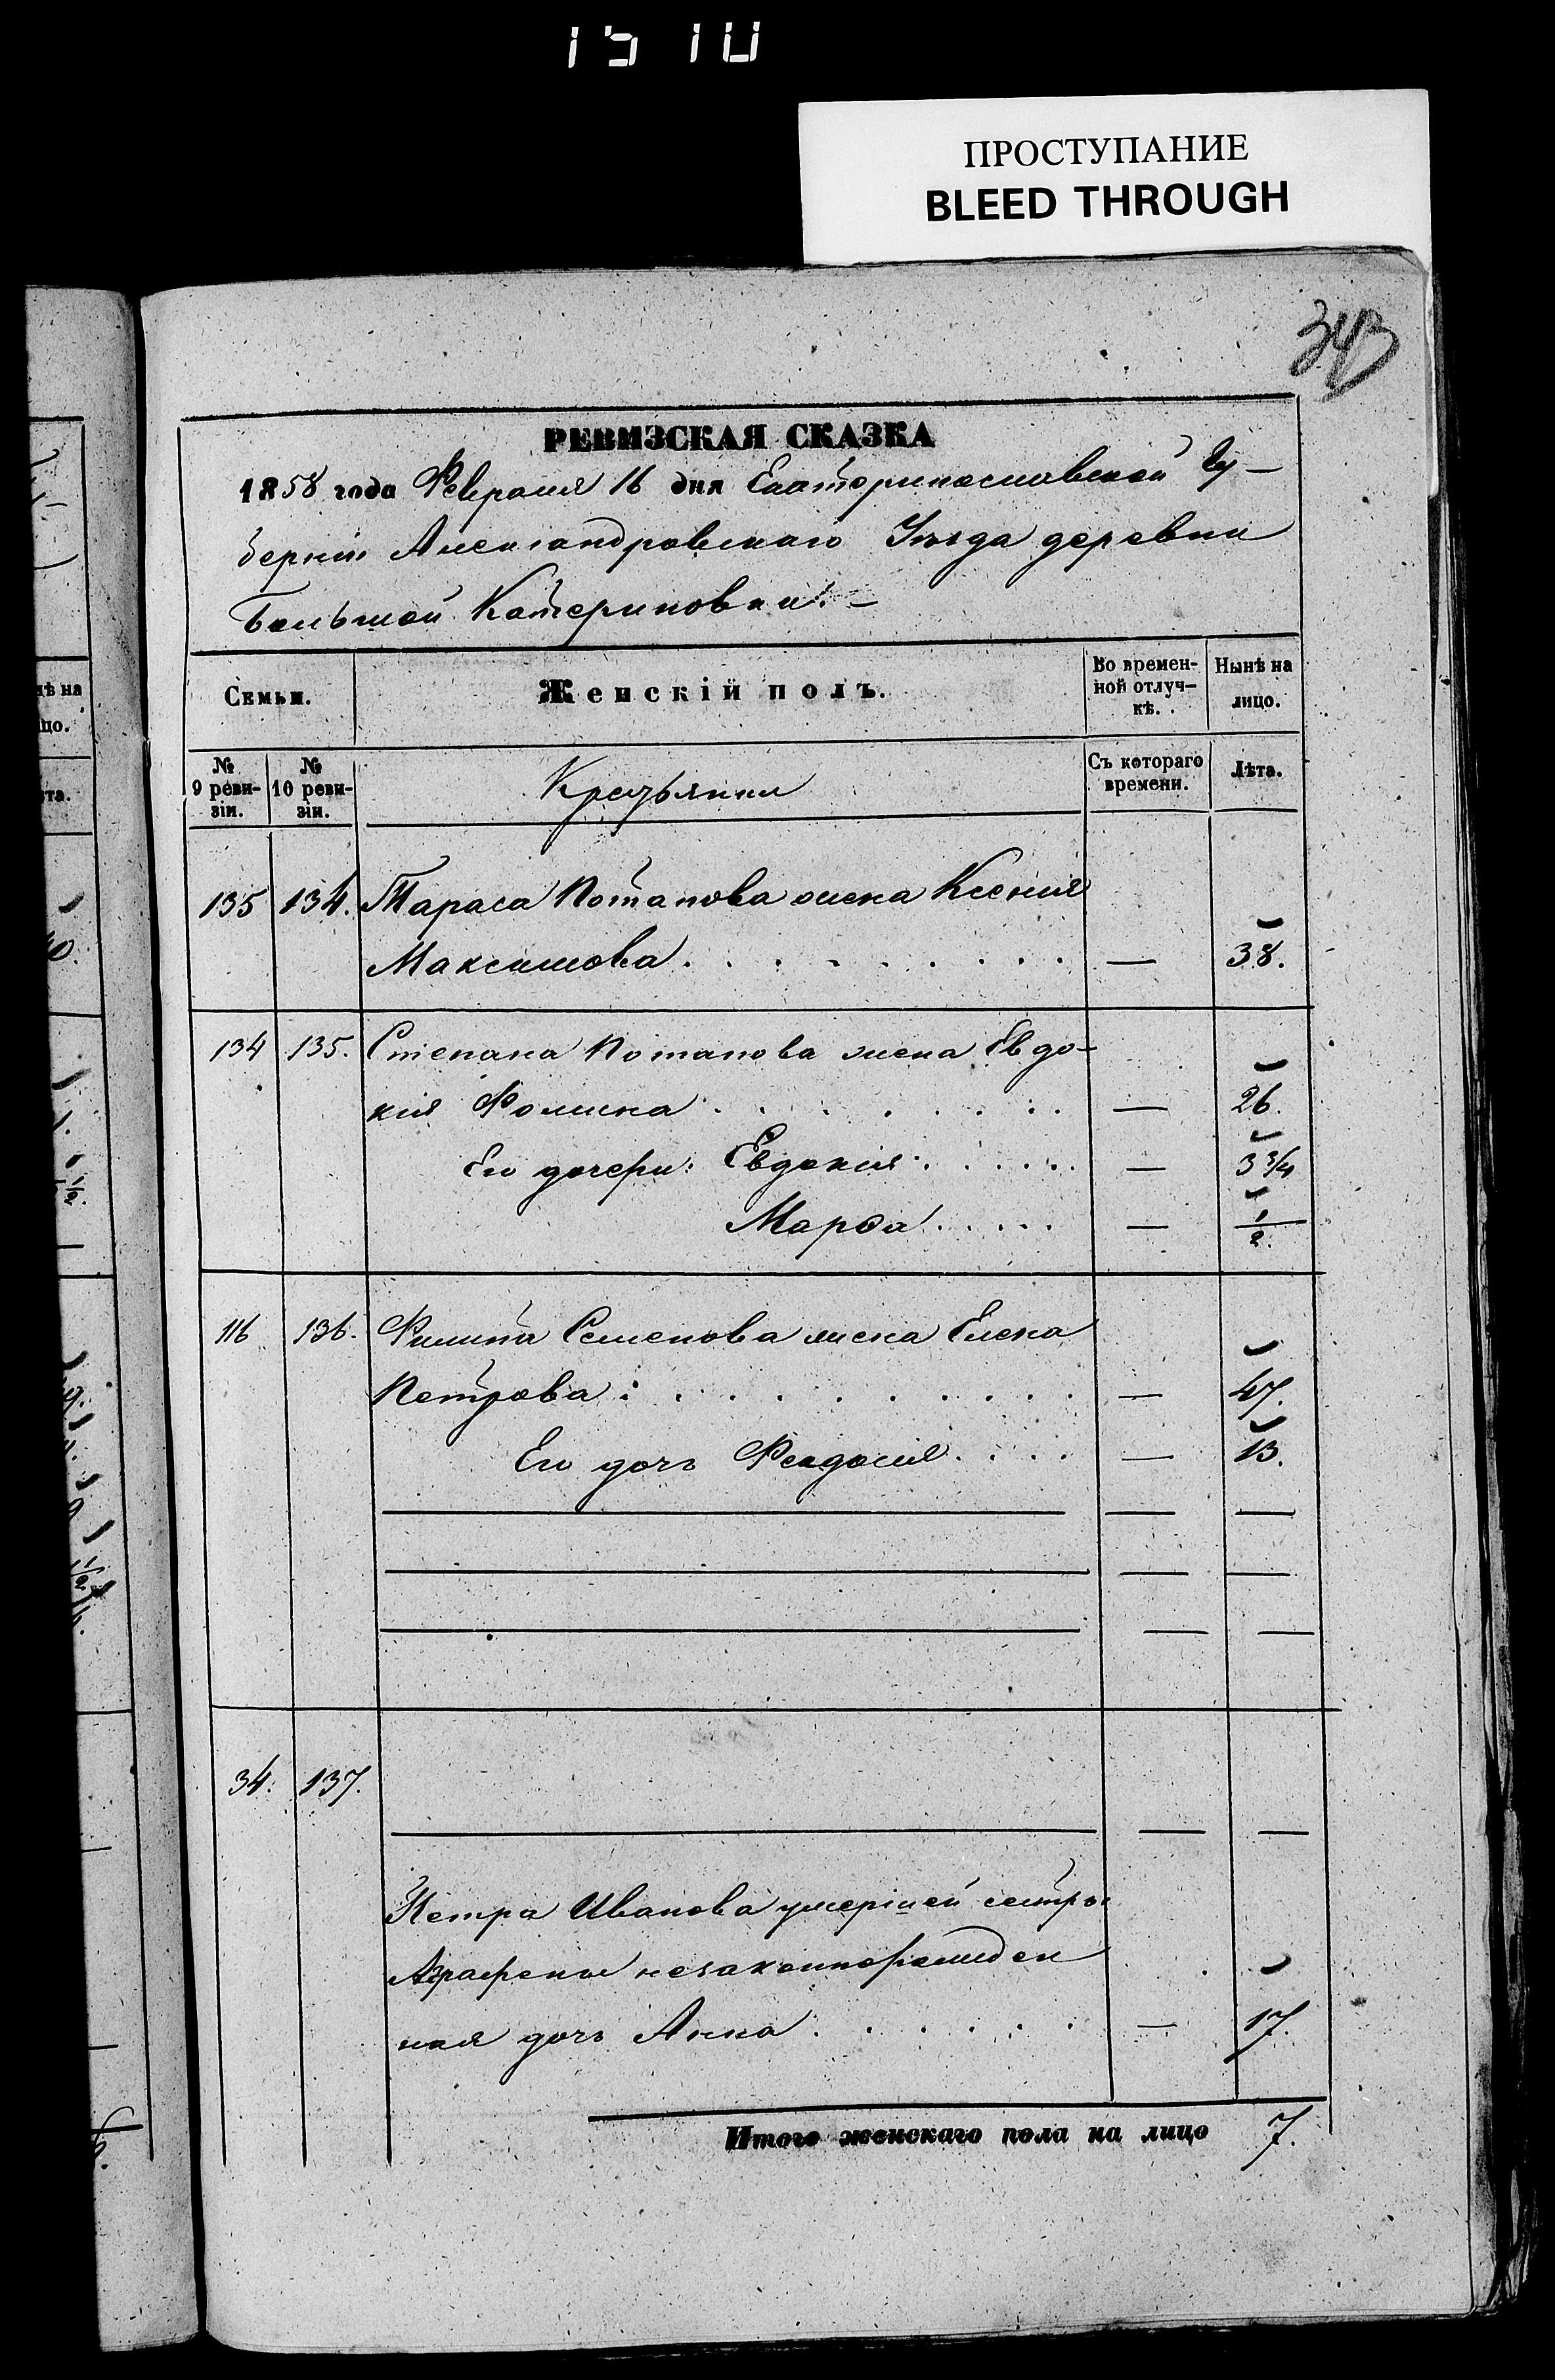 15 10
ПРОСТУПАНИЕ
BLEED THROUGH
343
РЕВИЗСКАЯ СКАЗКА
1858 года Февраля 16 дня Екатеринославской Гу-
берніи Александровскаго Уѣзда деревни
Большой Катериновки. –
Семьи.
Женскій полъ.
Во времен-
ной отлуч-
кѣ.
Нынѣ на
лицо.
№
9 реви-
зіи.
№
10 реви-
зіи.
Крестьянки
Съ котораго
времени.
Лѣта.
135 134. Тараса Потапова жена Ксения
Максимова . . . . . . . . . — 38.
134 135. Степана Потапова жена Евдо-
кия Фомина . . . . . . . . — 26.
Его дочери: Евдокия . . . . . . — 3 3/4
Марѳа . . . . . — 1/2.
116 136. Филипа Семенова жена Елена
Петрова . . . . . . . . . — 47.
Его дочь Феодосия . . . . — 13.
34. 137.
Петра Иванова умершей сестры
Аграфены незаконнорожден
ная дочь Анна . . . . . . — 17.
Итого женскаго пола на лицо 7.
нѣ на
цо.
та.